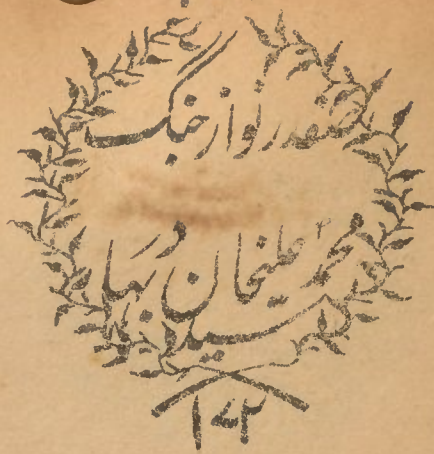 صفدر نواز جنگ
سید محمد علیخان بہادر
۱۴۲